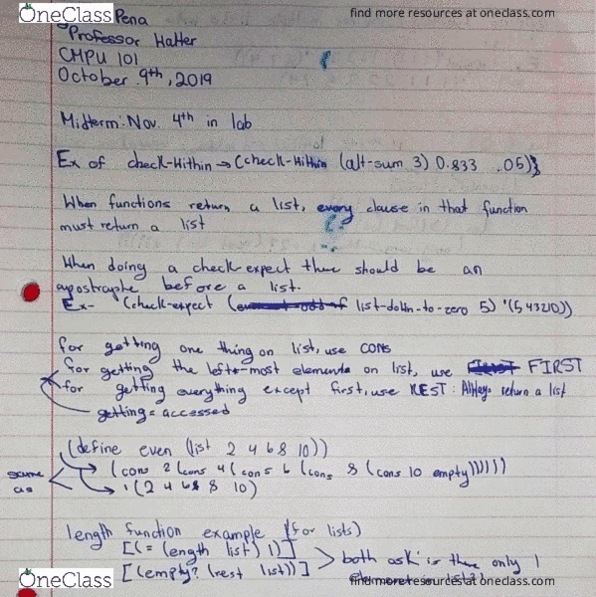 OneClass
find more resources at oneclass.com
Pena
Professor Hatter
CMPU 101
October 9th, 2019
Midterm: Nov. 4th in lab
Ex of check-within → (check-within (alt-sum 3) 0.833 .05)
When functions return a list, every clause in that function
must return a list
When doing a check-expect there should be an
apostraphe before a list.
Ex- (check-expect ( list-down-to-zero 5) '(5 43210))
for getting one thing on list, use CONS
for getting the left-most elements on list, use FIRST
for getting everything except first, use REST: Always return a list
getting = accessed
(define even (list 2 4 6 8 10))
same as
(cons 2 (cons 4 (cons 6 (cons 8 (cons 10 empty))))))
'(2 4 6 8 10)
length function example (for lists)
[(= (length list) 1)]
[(empty? (rest list))]
both ask is there only 1
OneClass
find more resources at oneclass.com